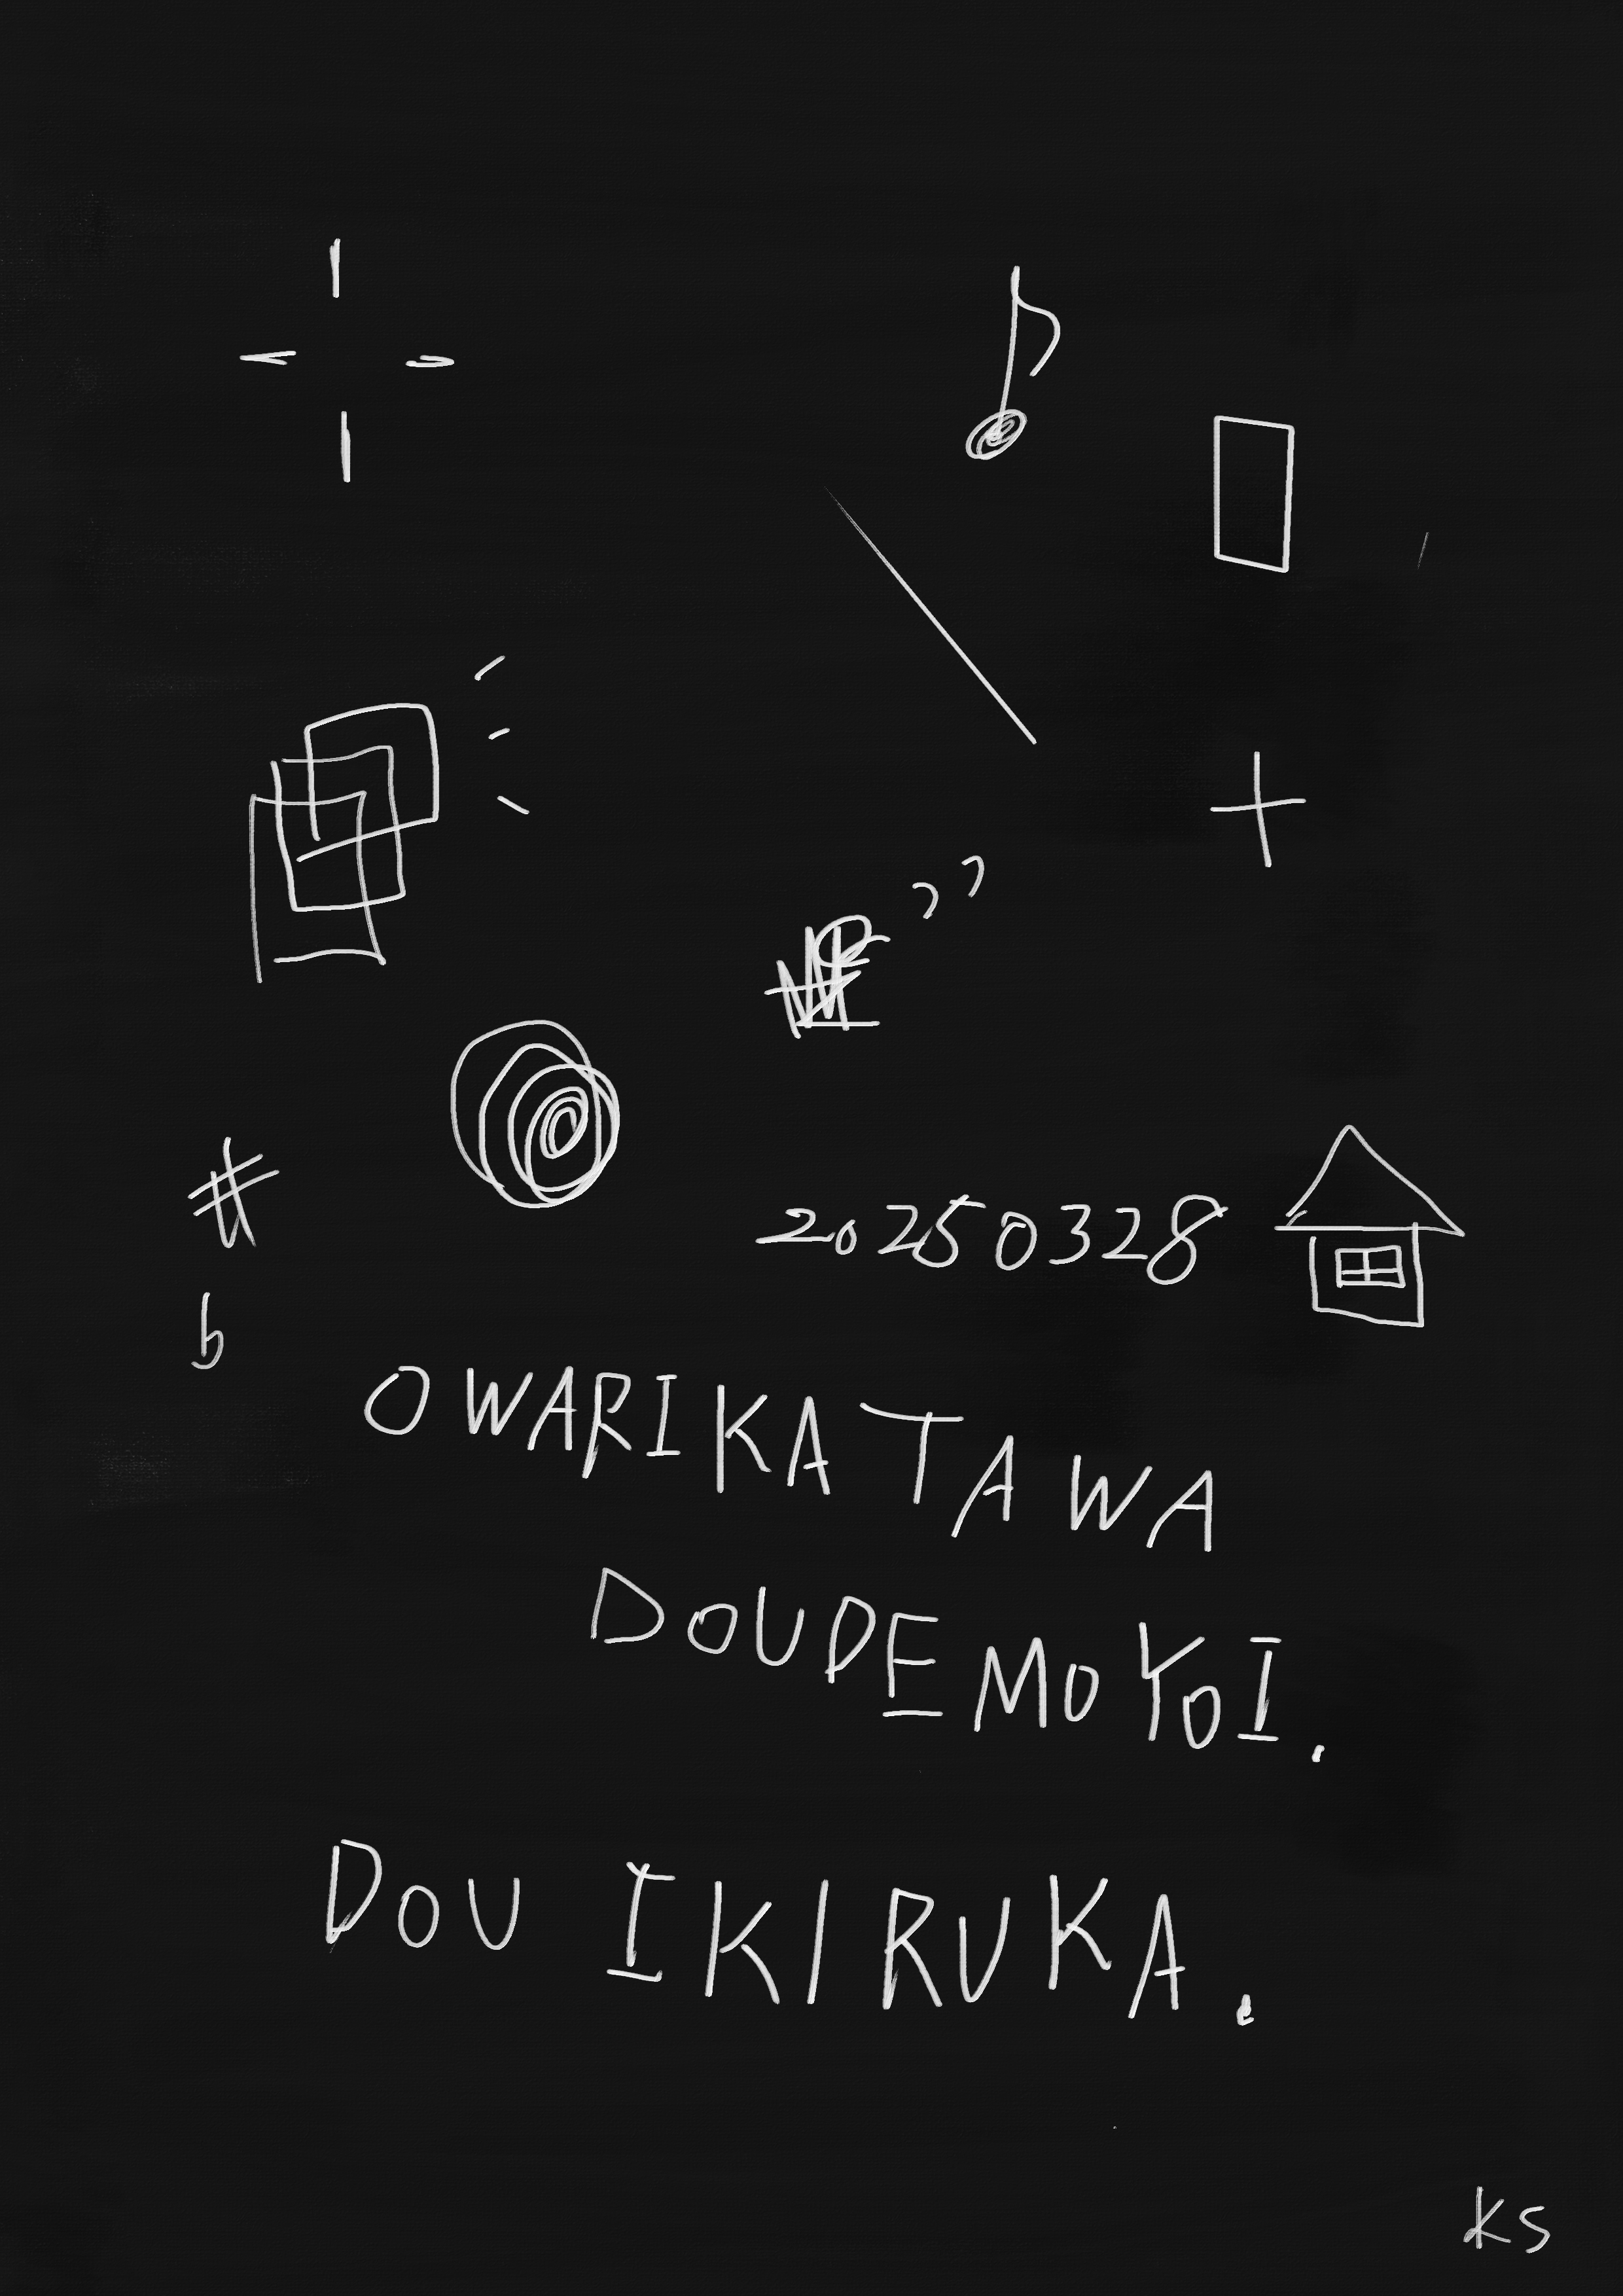 20250328
OWARIKATAWA
DOUDEMOYOI.
DOU IKIRUKA.
KS